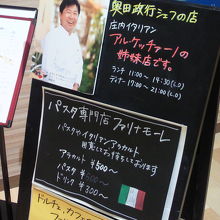 奥田政行シェフの店
庄内イタリアン
アル・ケッチァーノの
姉妹店です。
ランチ 11:00～14:30(L.O)
ディナー 17:00～21:00(L.O)
パスタ専門店ファリナモーレ
パスタやイタリアンアラカルト
用意してお待ちしております
アラカルト ¥500～
パスタ
ドリンク ¥300～
ドルチェ、カフェ